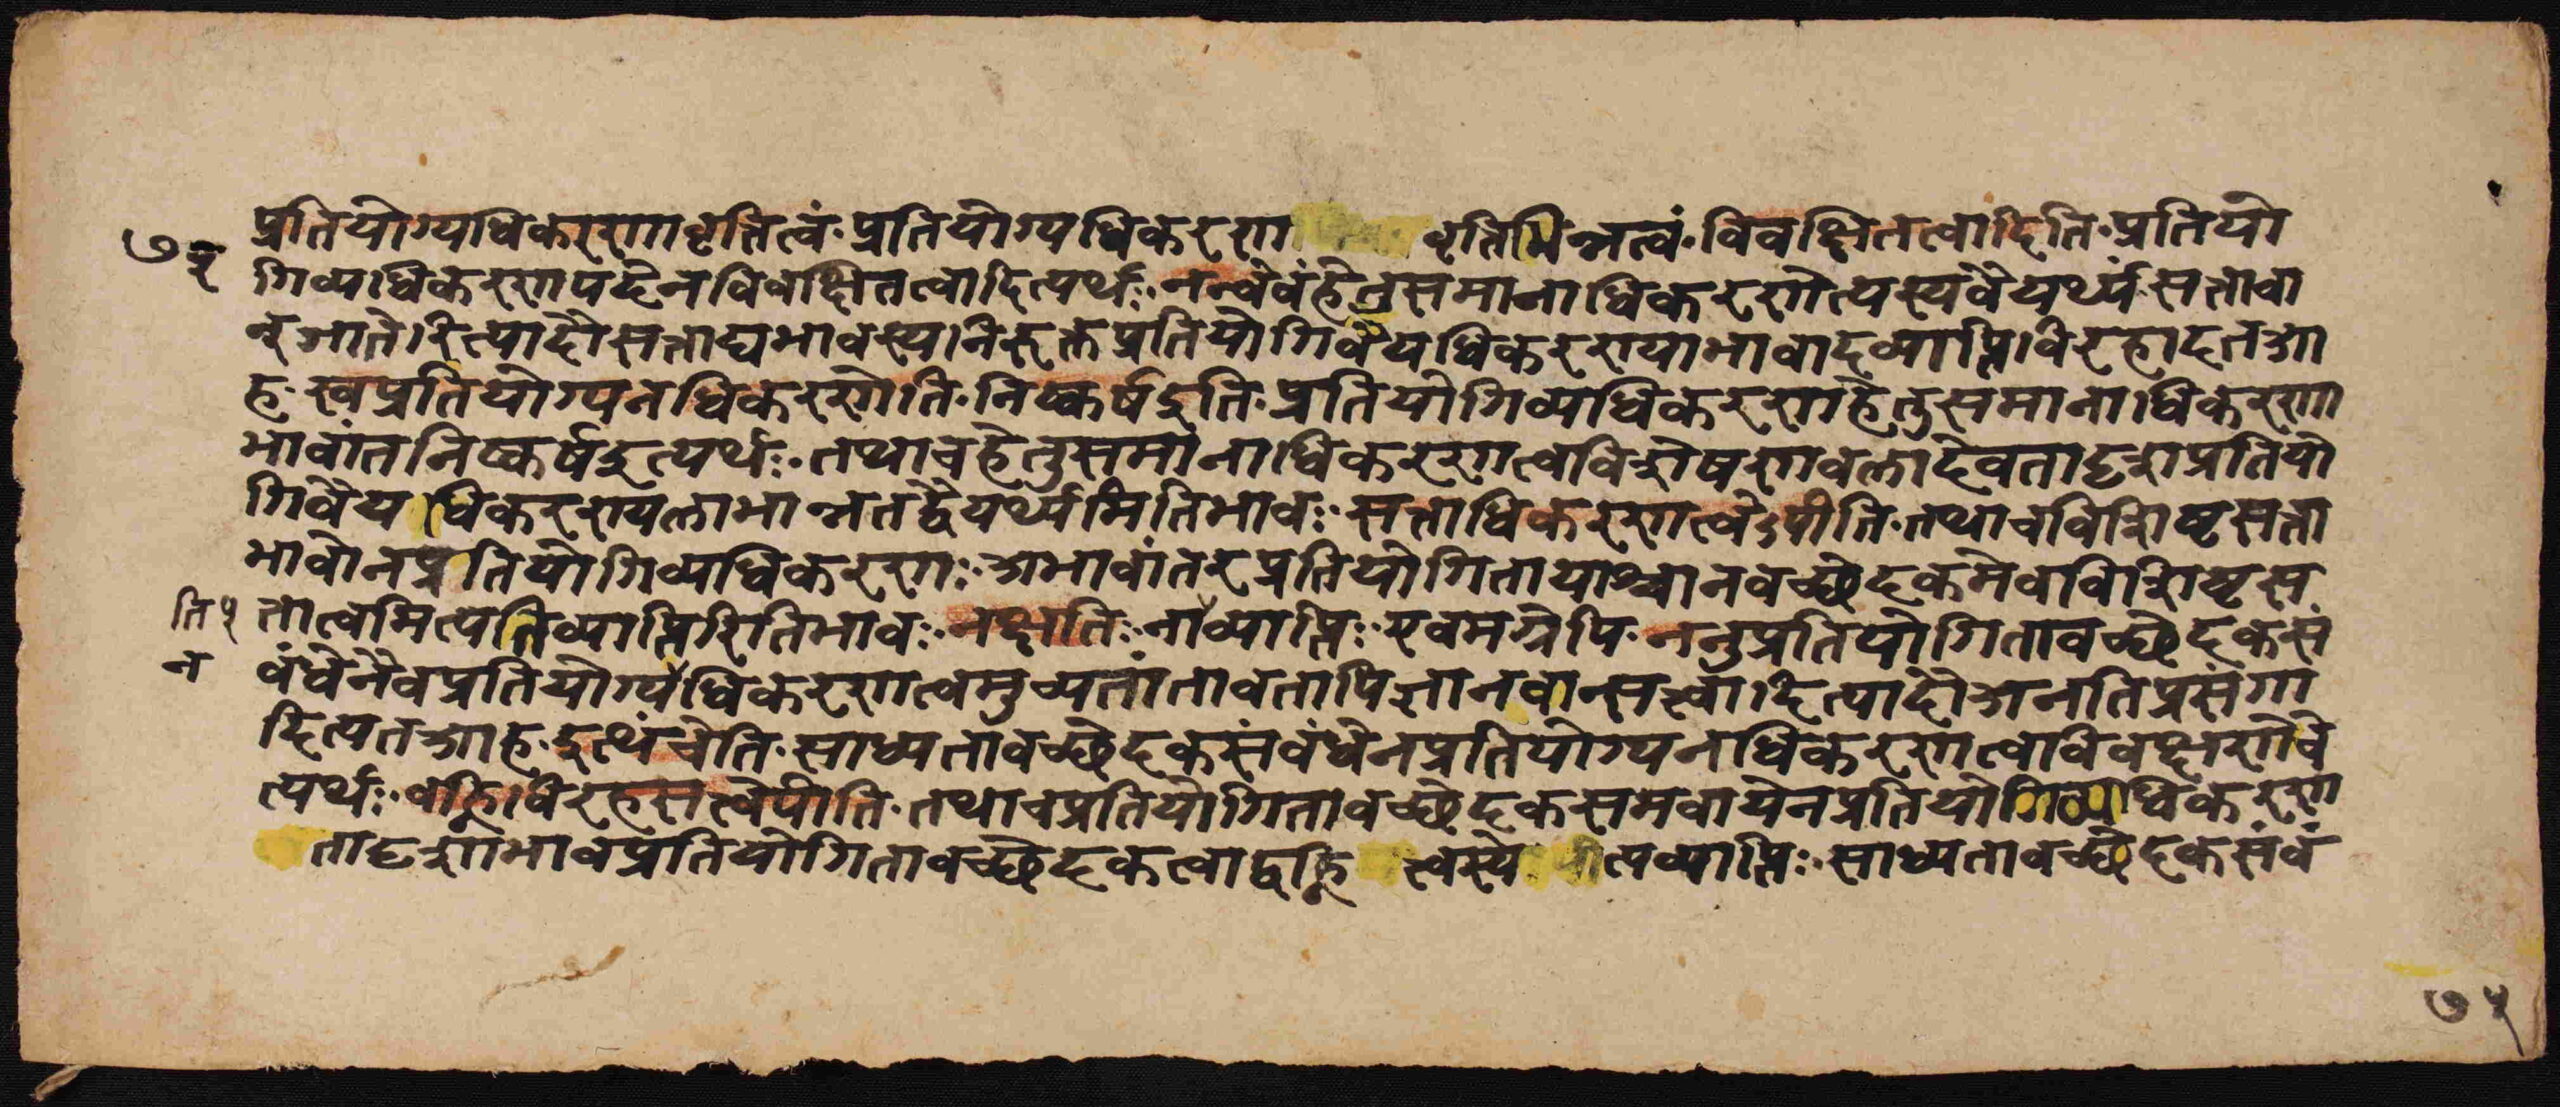 प्रतियोग्यधिकरणावृत्तित्वं॰प्रतियोग्यधिकरणा वृत्तिभिन्नत्वं॰विवक्षितत्वादिति॰प्रतियो
७३
गिव्यधिकरणपदेनविवक्षितत्वादित्यर्थः॰नन्वेवंहेतुसमानाधिकरणेत्यस्यवैयर्थ्यंसत्तावा
न्जातेरित्यादौसत्ताद्यभावस्यनिरुक्तप्रतियोगिवैयधिकरण्याभावादव्याप्तिविरहादतआ
ह॰स्वप्रतियोग्यनधिकरणेति॰निष्कर्षइति॰प्रतियोगिव्यधिकरणहेतुसमानाधिकरणा
भावांतनिष्कर्षइत्यर्थः॰तथाचहेतुसमानाधिकरणत्वविशेषणवलादेवतादृशप्रतियो
गिवैयधिकरण्यलाभान्नतद्वैयर्थ्यमितिभावः॰सत्ताधिकरणत्वेऽपीति॰तथाचविशिष्टसत्ता
भावोनप्रतियोगिव्यधिकरणः॰अभावांतरप्रतियोगितायाश्चानवच्छेदकमेवविशिष्टस
ति५ त्तात्वमित्यतिव्याप्तिरितिभावः॰नक्षतिः॰नाव्याप्तिः॰एवमग्रेपि॰ननुप्रतियोगितावच्छेदकसं
न वंधेनैवप्रतियोग्यधिकरणत्वमुच्यतांतावतापिज्ञानवान्सत्त्वादित्यादौअनतिप्रसंगा
दित्यतआह॰इत्थंचेति॰साध्यतावच्छेदकसंवंधेनप्रतियोग्यनधिकरणत्वविवक्षणेचे
त्यर्थः॰वह्निविरहसत्वेपीति॰तथाचप्रतियोगितावच्छेदकसमवायेनप्रतियोगिव्यधिकरण
तादृशाभावप्रतियोगितावच्छेदकत्वाद्वह्नि त्वस्ये त्यव्याप्तिः॰साध्यतावच्छेदकसंवं
७५